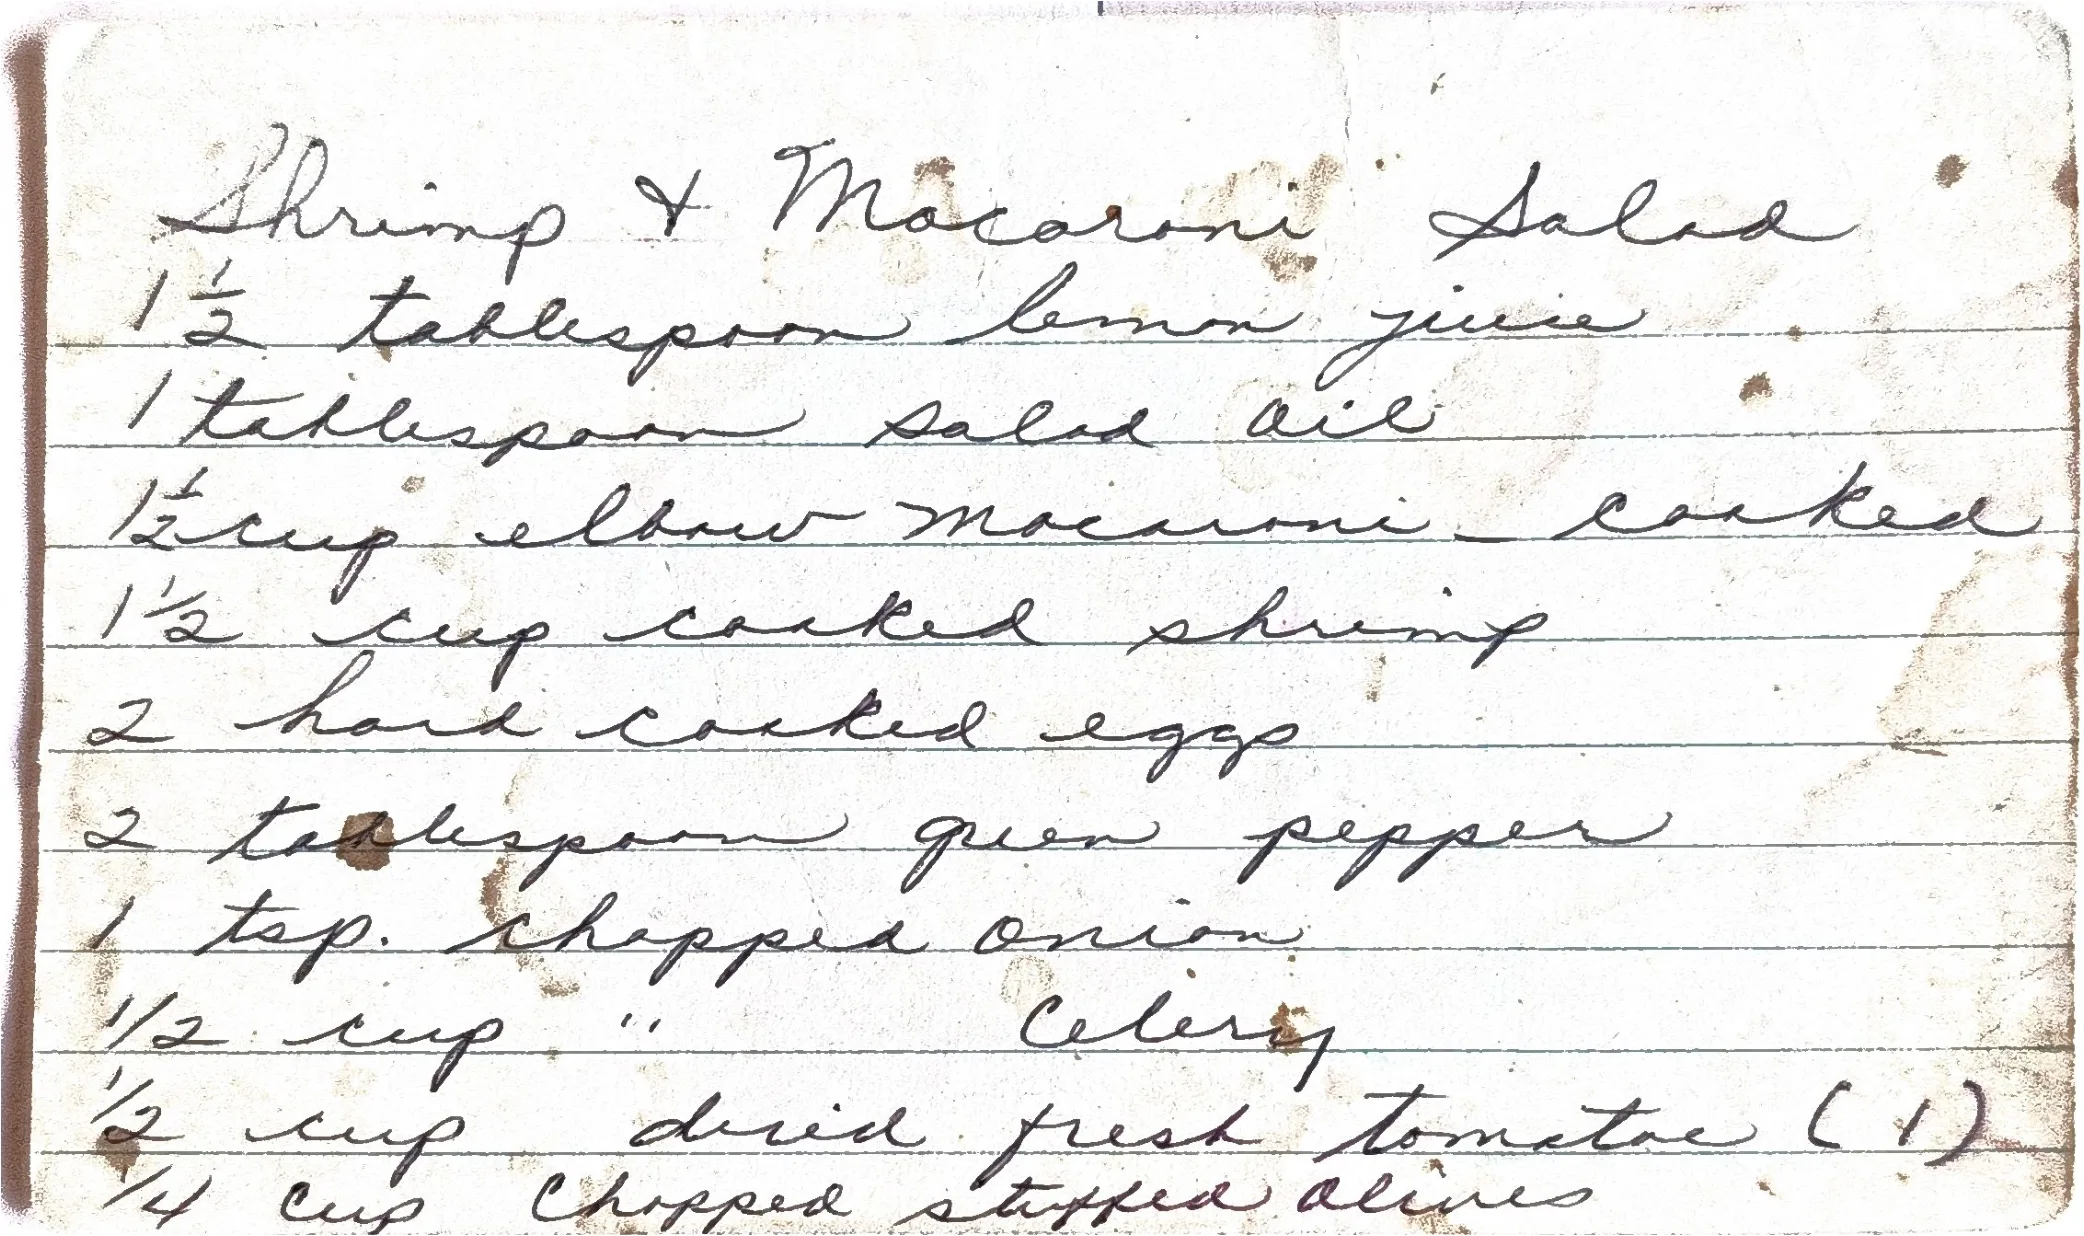 Shrimp & Macaroni Salad
1 1/2 tablespoon lemon juice
1 tablespoon salad oil
1 1/2 cup elbow macaroni - cooked
1 1/2 cup cooked shrimp
2 hard cooked eggs
2 tablespoon green pepper
1 tsp. chopped onion
1/2 cup " Celery
1/2 cup dried fresh tomatoe (1)
1/4 cup chopped stuffed olives